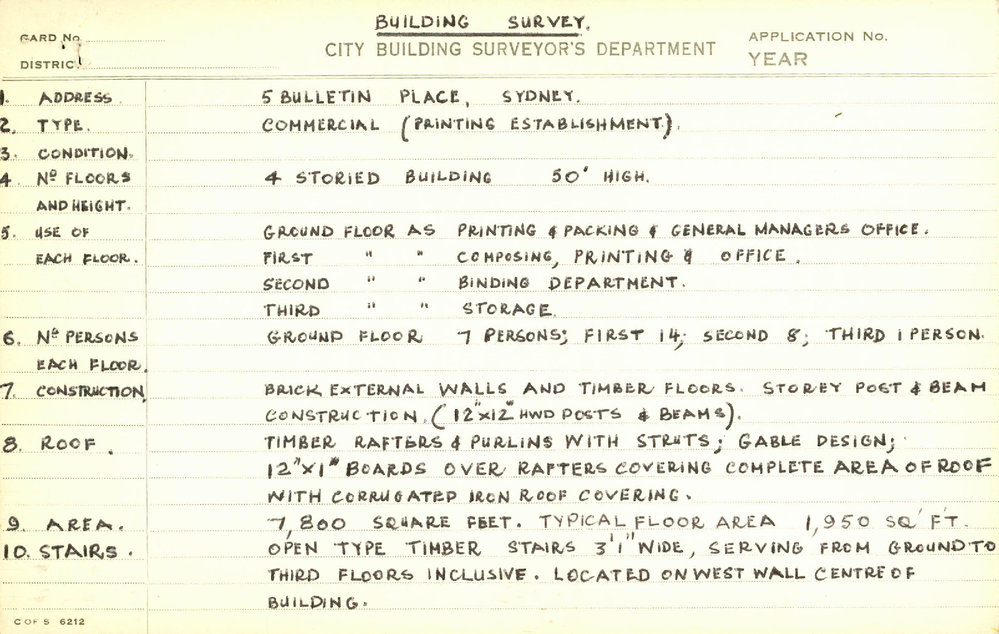 BUILDING SURVEY.
CARD No.
CITY BUILDING SURVEYOR'S DEPARTMENT
APPLICATION No.
DISTRICT
YEAR
1. ADDRESS. 5 BULLETIN PLACE, SYDNEY.
2. TYPE. COMMERCIAL (PRINTING ESTABLISHMENT).
3. CONDITION.
4. Nº FLOORS 4 STORIED BUILDING 50' HIGH.
AND HEIGHT.
5. USE OF GROUND FLOOR AS PRINTING & PACKING & GENERAL MANAGERS OFFICE.
EACH FLOOR. FIRST " " COMPOSING, PRINTING & OFFICE.
SECOND " " BINDING DEPARTMENT.
THIRD " " STORAGE.
6. Nº PERSONS GROUND FLOOR 7 PERSONS; FIRST 14; SECOND 8; THIRD 1 PERSON.
EACH FLOOR.
7. CONSTRUCTION. BRICK EXTERNAL WALLS AND TIMBER FLOORS. STOREY POST & BEAM
CONSTRUCTION. (12"x12" HWD POSTS & BEAMS).
8. ROOF. TIMBER RAFTERS & PURLINS WITH STRUTS; GABLE DESIGN;
12"x1" BOARDS OVER RAFTERS COVERING COMPLETE AREA OF ROOF
WITH CORRUGATED IRON ROOF COVERING.
9. AREA. 7,800 SQUARE FEET. TYPICAL FLOOR AREA 1,950 SQ' FT.
10. STAIRS. OPEN TYPE TIMBER STAIRS 3'1" WIDE, SERVING FROM GROUND TO
THIRD FLOORS INCLUSIVE. LOCATED ON WEST WALL CENTRE OF
BUILDING.
C OF S 6212